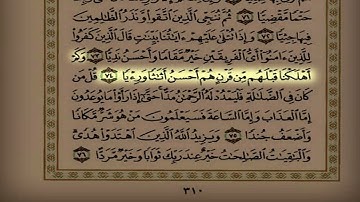 حَتْمًا مَّقْضِيًّا ﴿٧١﴾ ثُمَّ نُنَجِّى الَّذِينَ اتَّقَوا وَّنَذَرُ الظَّالِمِينَ
فِيهَا جِثِيًّا ﴿٧٢﴾ وَإِذَا تُتْلَىٰ عَلَيْهِمْ ءَايَاتُنَا بَيِّنَاتٍ قَالَ الَّذِينَ كَفَرُوا
لِلَّذِينَ ءَامَنُوا أَىُّ الْفَرِيقَيْنِ خَيْرٌ مَّقَامًا وَأَحْسَنُ نَدِيًّا ﴿٧٣﴾ وَكَمْ
أَهْلَكْنَا قَبْلَهُم مِّن قَرْنٍ هُمْ أَحْسَنُ أَثَاثًا وَرِءْيًا ﴿٧٤﴾ قُلْ مَن
كَانَ فِى الضَّلَالَةِ فَلْيَمْدُدْ لَهُ الرَّحْمَٰنُ مَدًّا حَتَّىٰ إِذَا رَأَوْا مَا يُوعَدُونَ
إِمَّا الْعَذَابَ وَإِمَّا السَّاعَةَ فَسَيَعْلَمُونَ مَنْ هُوَ شَرٌّ مَّكَانًا
وَأَضْعَفُ جُندًا ﴿٧٥﴾ وَيَزِيدُ اللَّهُ الَّذِينَ اهْتَدَوْا هُدًى
وَالْبَاقِيَاتُ الصَّالِحَاتُ خَيْرٌ عِندَ رَبِّكَ ثَوَابًا وَخَيْرٌ مَّرَدًّا ﴿٧٦﴾
٣١٠